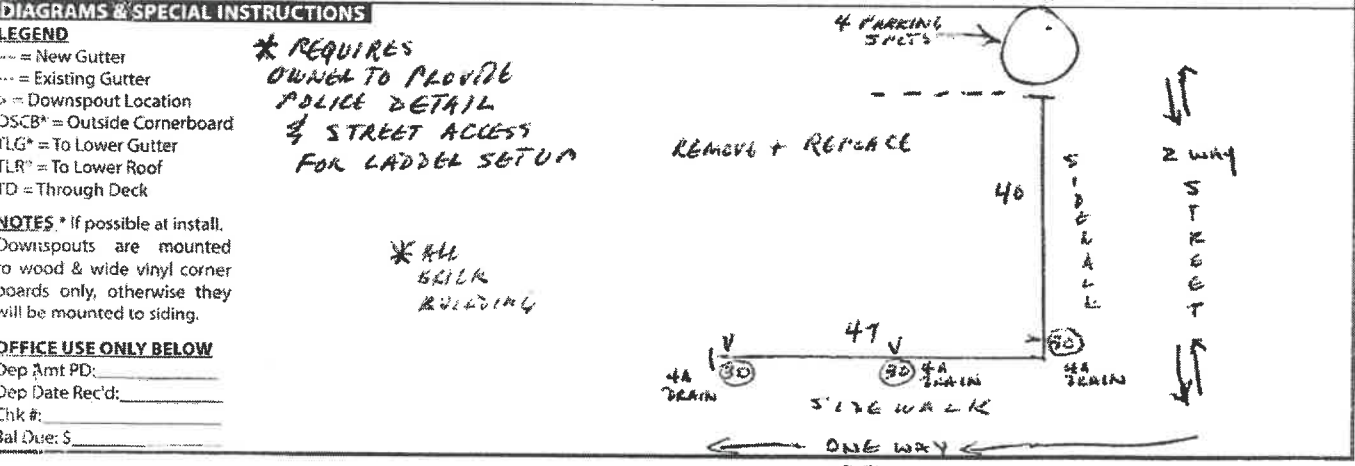 DIAGRAMS & SPECIAL INSTRUCTIONS
LEGEND
--- = New Gutter
--- = Existing Gutter
> = Downspout Location
OSCB* = Outside Cornerboard
TLG* = To Lower Gutter
TLR* = To Lower Roof
TD = Through Deck
NOTES * If possible at install.
Downspouts are mounted
to wood & wide vinyl corner
boards only, otherwise they
will be mounted to siding.
OFFICE USE ONLY BELOW
Dep Amt PD:
Dep Date Rec'd:
Chk #:
Bal Due: $
* REQUIRES
OWNER TO PROVIDE
POLICE DETAIL
& STREET ACCESS
FOR LADDER SETUP
* ALL
BRICK
BUILDING
4 PARKING
SPOTS
REMOVE + REPLACE
40
SIDEWALK
2 WAY
STREET
47
30
30
30
4A
DRAIN
4A
DRAIN
4A
DRAIN
SIDEWALK
ONE WAY